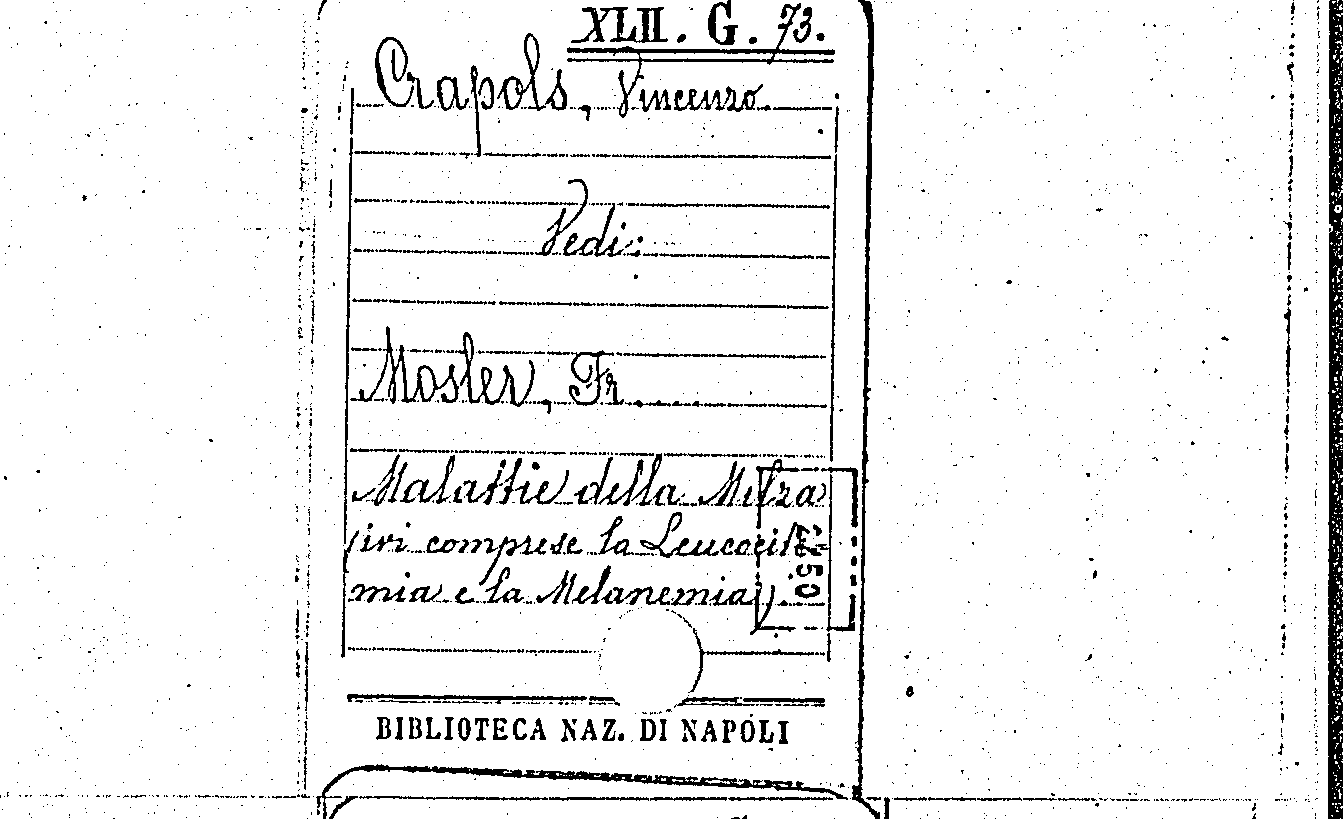 XLII. G. 73.
Crapols, Vincenzo.
Vedi:
Mosler, Fr....
Malattie della Milza
(ivi comprese la Leucocite-
mia e la Melanemia).
BIBLIOTECA NAZ. DI NAPOLI